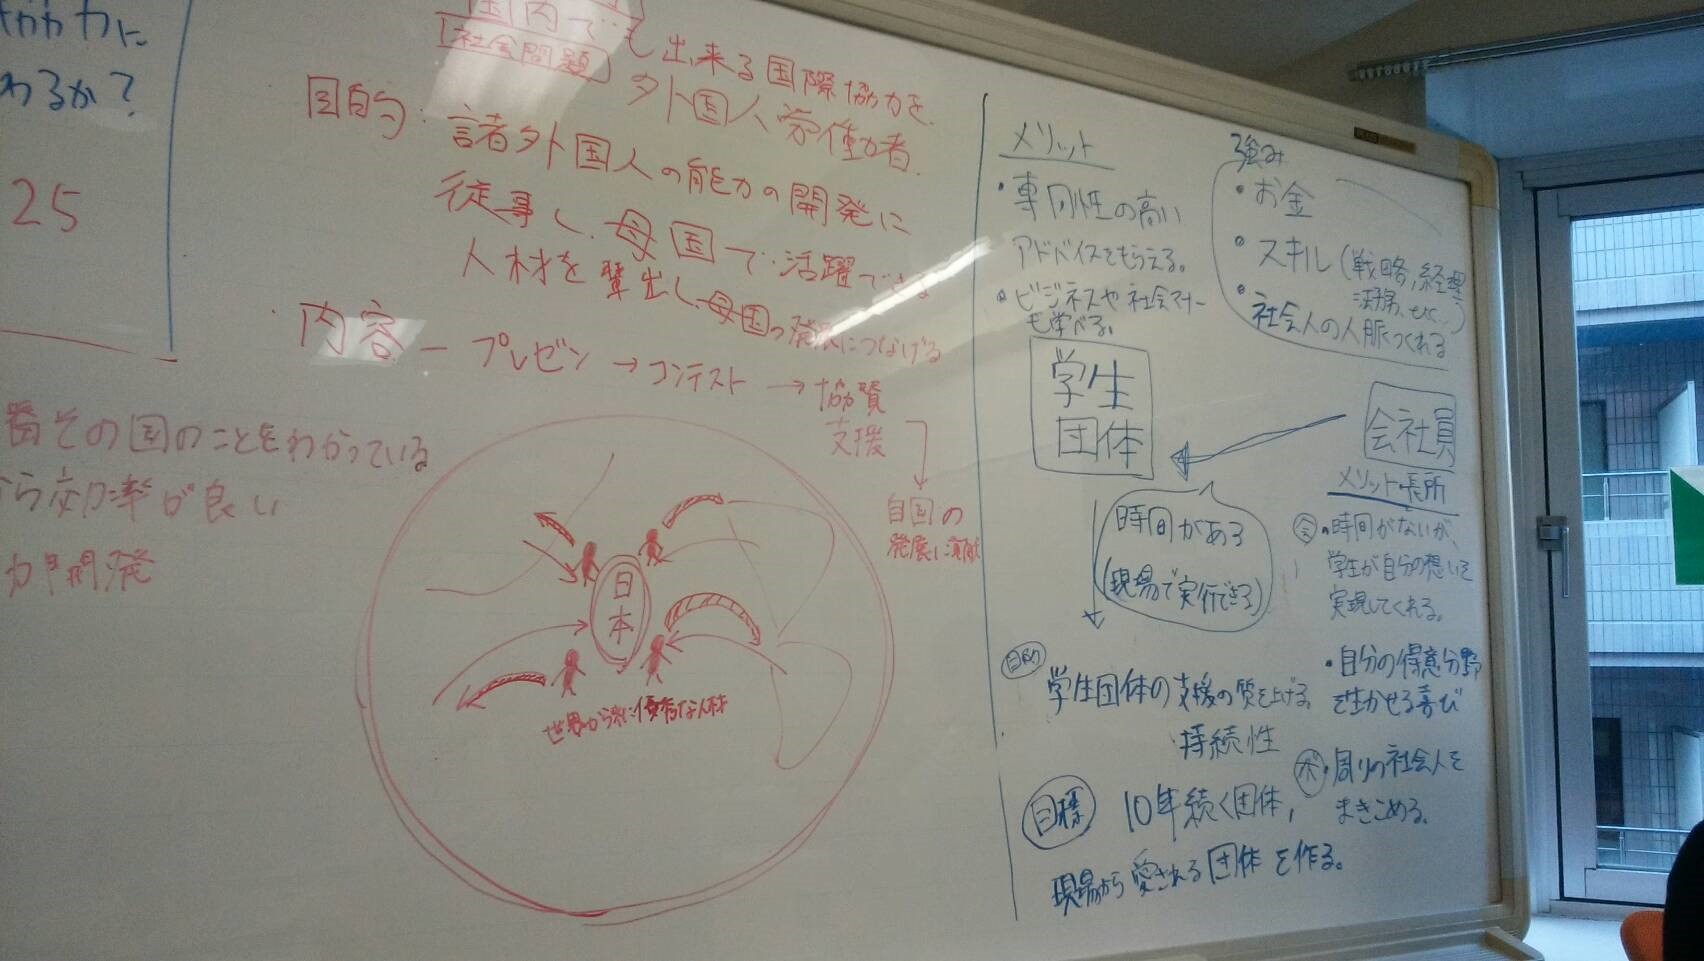 わるか？
25
その国のことをわかっている
ら効率が良い
開発
国内でも出来る国際協力を
社会問題
外国人労働者
目的：諸外国人の能力の開発に
従事し、母国で活躍できる
人材を輩出し、母国の発展につなげる
・内容 － プレゼン → コンテスト → 協賛
支援
自国の
発展に貢献
日本
世界から来た優秀な人材
メリット
・専門性の高い
アドバイスをもらえる。
・ビジネスや社会マナー
も学べる。
学生
団体
時間がある
(現場で実行できる)
目的
学生団体の支援の質を上げる。
・持続性
目標 10年続く団体,
現場から愛される団体を作る。
強み
・お金
・スキル (戦略, 経理
法務, etc...)
・社会人の人脈つくれる
会社員
メリット・長所
・時間がないが、
学生が自分の想いを
実現してくれる。
・自分の得意分野
を生かせる喜び
・周りの社会人を
まきこめる。